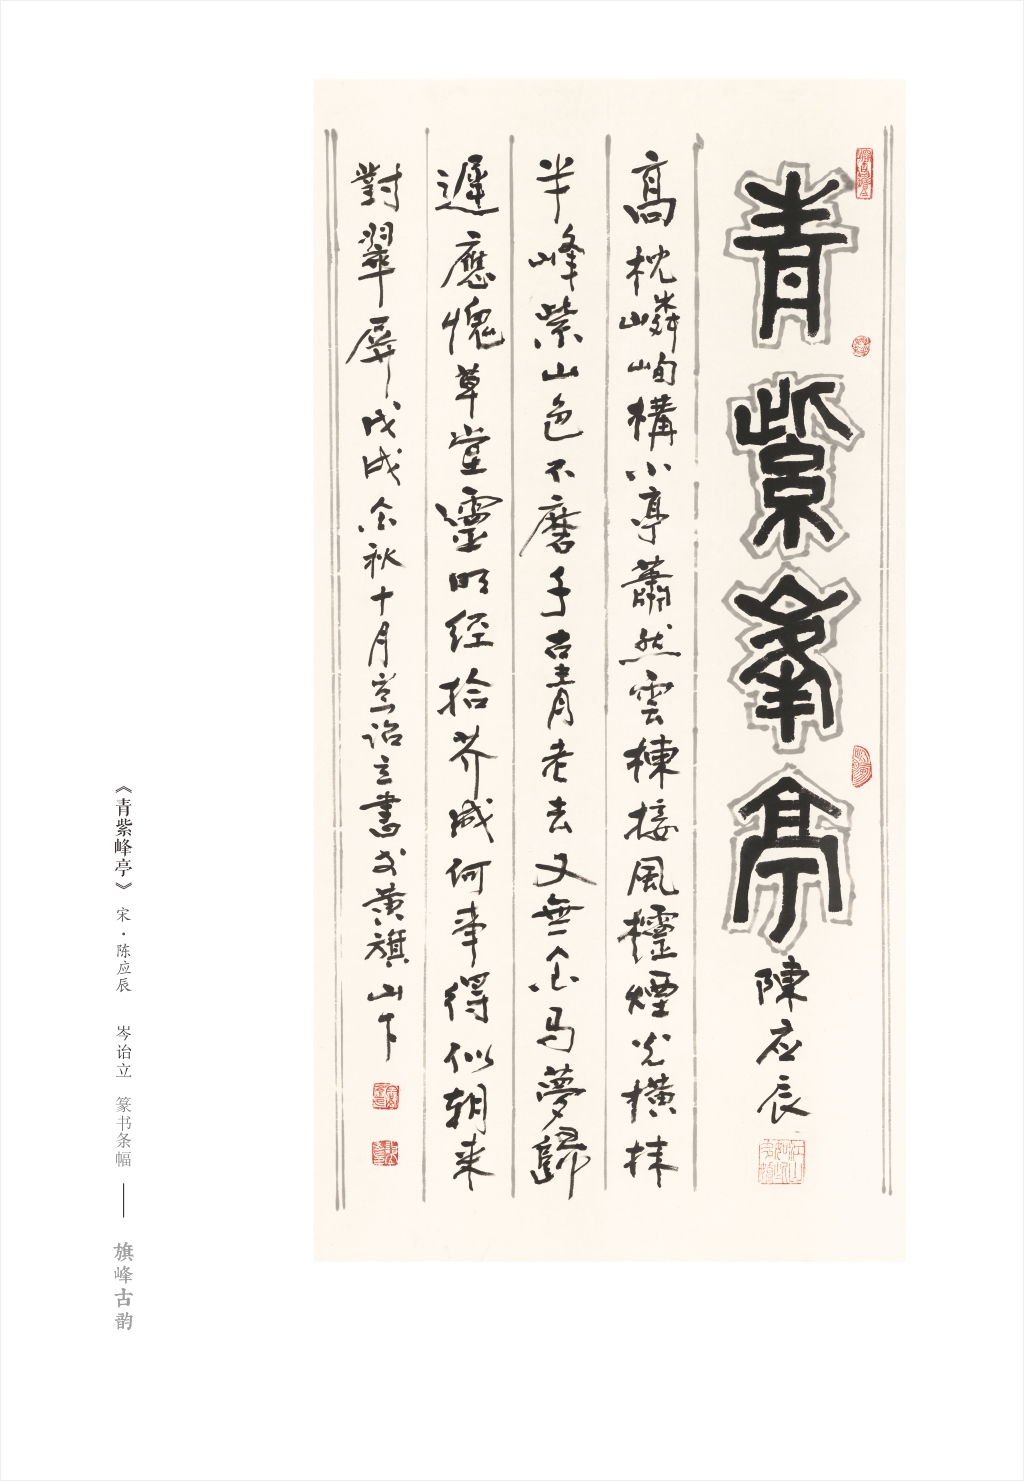 青紫峯亭 陳应辰
高枕嶙峋構小亭蕭然雲棟接風欞煙光橫抹
半峰紫山色不磨千古青老去又無金马夢歸
遲應愧草堂靈明经拾芥成何事得似朝来
對翠屏 戊戌金秋十月岑诒立書於黄旗山下
《青紫峰亭》 宋·陈应辰 岑诒立 篆书条幅 —— 旗峰古韵